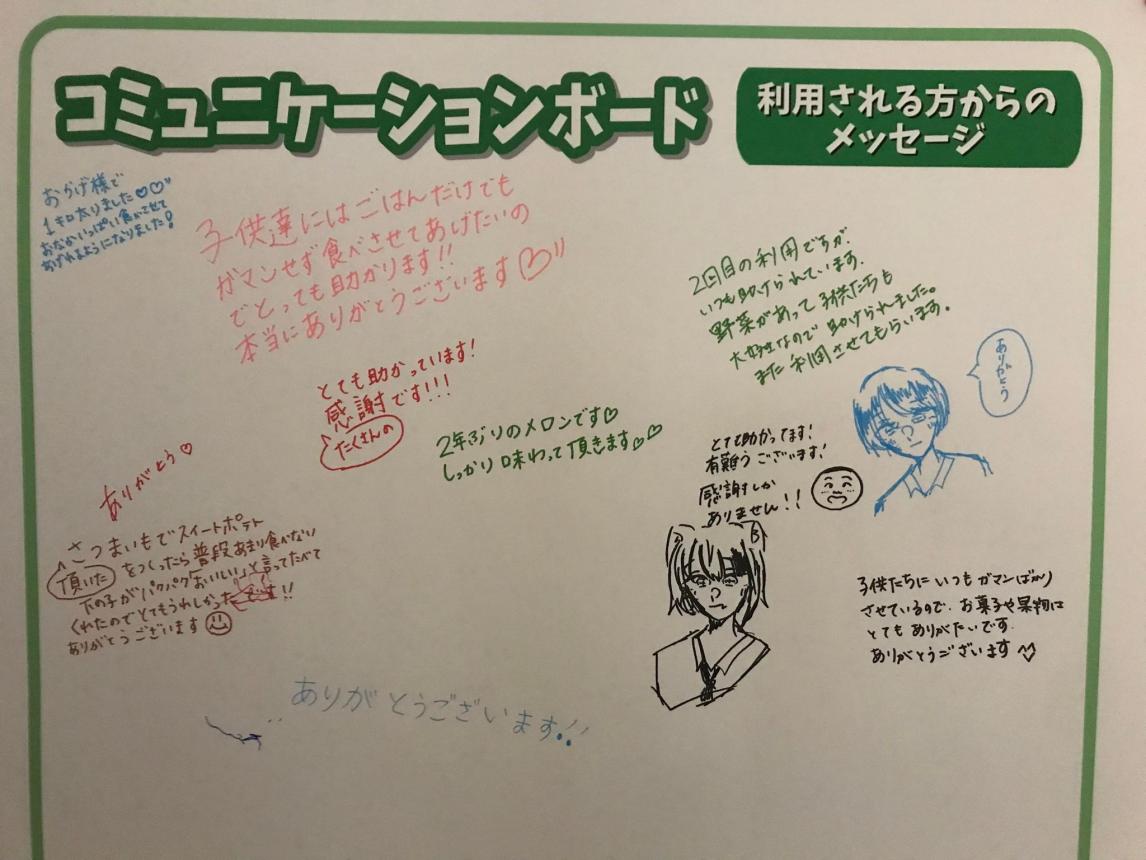 コミュニケーションボード
利用される方からの
メッセージ
おかげ様で
1キロ太りました♡♡"
おなかいっぱい食べさせて
あげれるようになりました!
子供達にはごはんだけでも
ガマンせず食べさせてあげたいの
でとっても助かります!!
本当にありがとうございます♡"
2回目の利用ですが、
いつも助けられています。
野菜があって子供たちも
大好きなので助けられました。
また利用させてもらいます。
ありがとう
とても助かっています!
感謝です!!!
たくさんの
2年ぶりのメロンです♡
しっかり味わって頂きます♡♡
とても助かってます!
有難うございます!
感謝しか
ありません!!
ありがとう♡
さつまいもでスイートポテト
頂いた
をつくったら普段あまり食べない
下の子がパクパク「おいしい」と言ってたべて
くれたのでとてもうれしかったです!!
ありがとうございます
子供たちにいつもガマンばかり
させているので、お菓子や果物は
とてもありがたいです。
ありがとうございます
ありがとうございます!!